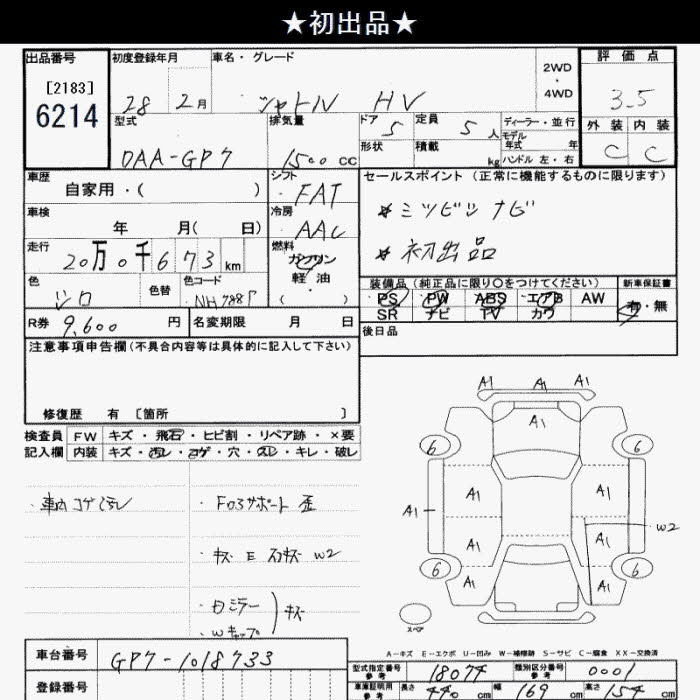 ★初出品★
出品番号 初度登録年月 車名・グレード 2WD ・ 4WD 評価点
[2183]
6214
28 2月 シャトル HV 3.5
型式 排気量 ドア 定員 ディーラー・並行 外装 内装
DAA-GP7 1500 cc 5 5 人 モデル年式 年 C C
形状 積載 kg ハンドル 左・右
車歴 シフト セールスポイント (正常に機能するものに限ります)
自家用・( ) FAT ☆ミツビシナビ
車検 冷房
年 月( 日) AAC ☆初出品
走行 燃料
20万0千673 km ガソリン 軽油 ・( )
色 色替 色コード 装備品 (純正品に限り○をつけてください) 新車保証書
シロ NH788P PS PW ABS エアB AW 有・無
SR ナビ TV カワ
R券 9,600 円 名変期限 月 日 後日品
注意事項申告欄(不具合内容等は具体的に記入して下さい)
修復歴 有 〔箇所 〕
検査員 FW キズ・飛石・ヒビ割・リペア跡・×要
記入欄 内装 キズ・汚レ・コゲ・穴・スレ・キレ・破レ
A1 A1 A1
A1
6 6
A1 A1
A1 W2
A1 A1
6 6
A1 A1
スペア
・車内コゲ汚レ
・F03サポート歪
・キズ E スリキズ W2
・Wキャップ キズ
A-キズ E-エクボ U-凹み W-補修跡 S-サビ C-腐食 XX-交換済
車台番号 GP7-1018733
型式指定番号 参考 18074 類別区分番号 参考 0001
登録番号
車庫証明用 参考 長さ 440 cm 幅 169 cm 高さ 154 cm